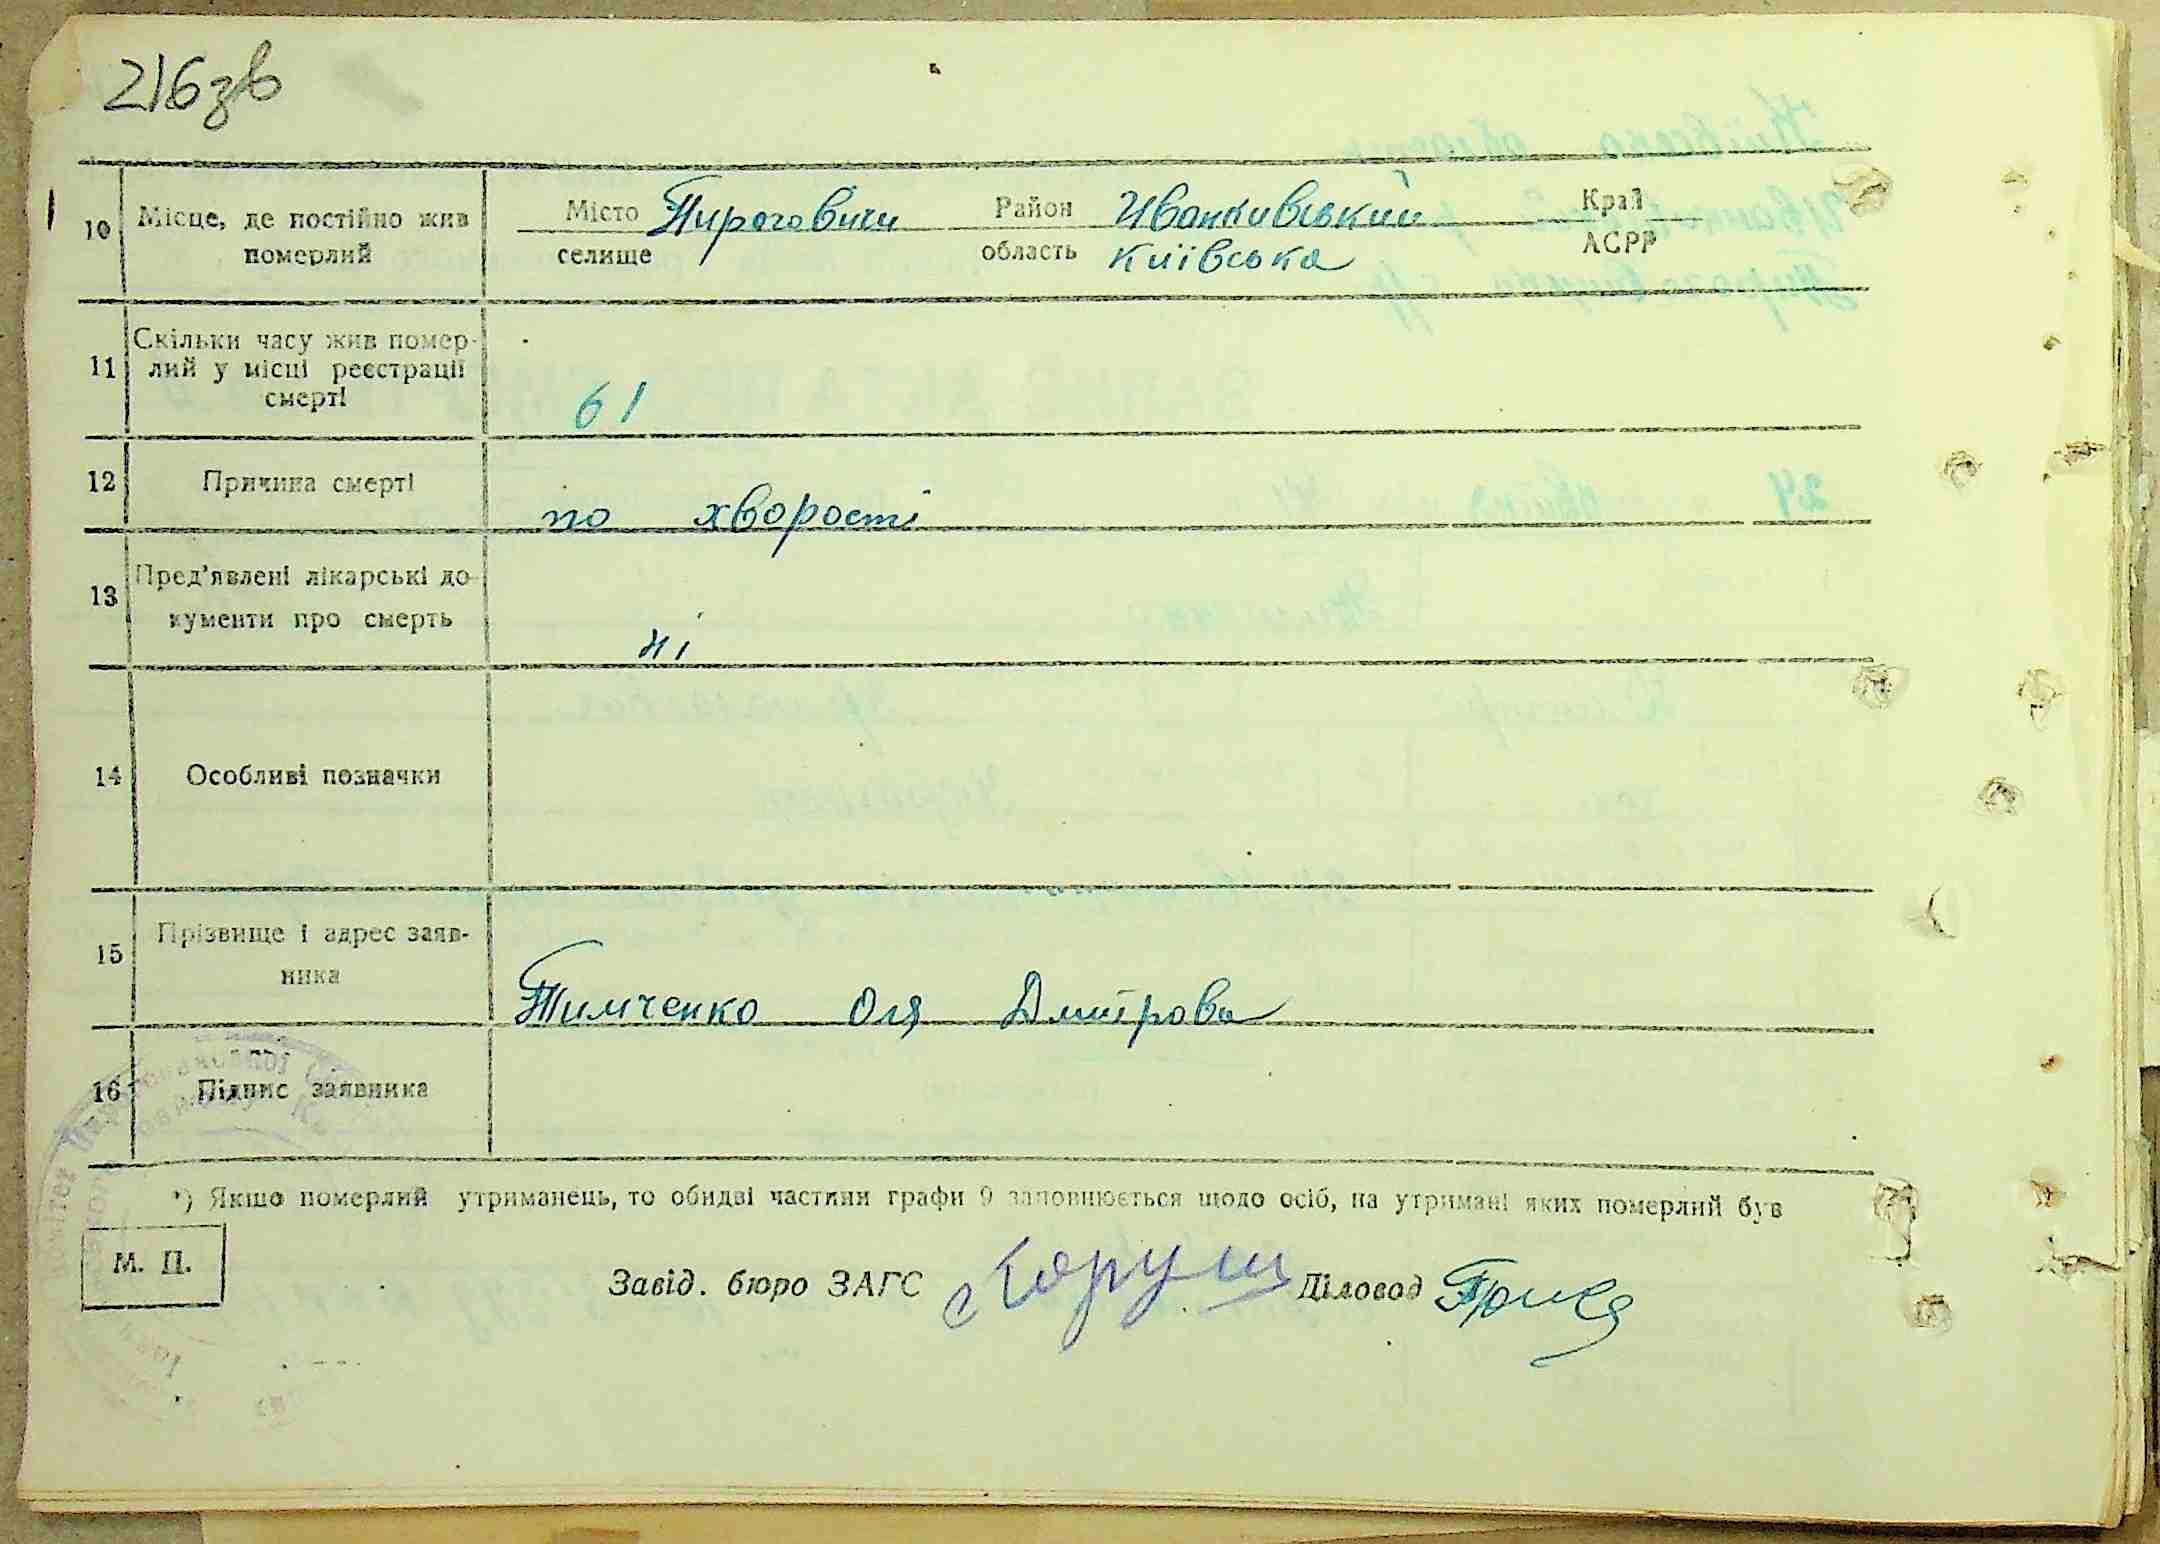 216зв
10 Місце, де постійно жив Місто Пироговичи Район Иванкивський Край
померлий селище область Київська АСРР
11 Скільки часу жив помер-
лий у місці реєстрації
смерті 61
12 Причина смерті по хворості
13 Пред'явлені лікарські до-
кументи про смерть ні
14 Особливі позначки
15 Прізвище і адрес заяв-
ника Тимченко Оля Дмитрова
16 Підпис заявника
*) Якщо померлий утриманець, то обидві частини графи 9 заповнюється щодо осіб, на утримані яких померлий був
М. П.
Завід. бюро ЗАГС Діловод